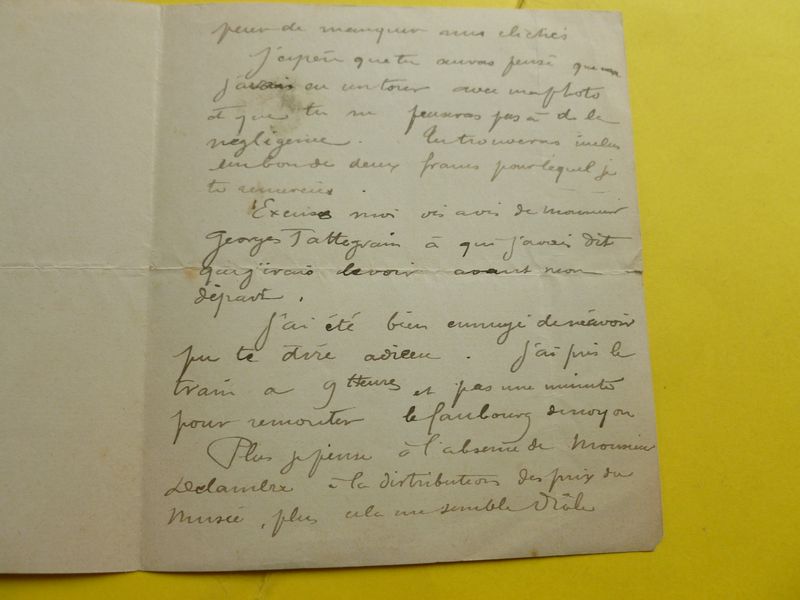 peur de manquer mes clichés
J'espère que tu auras pensé que
j'avais eu un tour avec ma photo
et que tu ne penseras pas à de la
négligence. Tu trouveras inclus
un bon de deux francs pour lequel je
te remercie.
Excuse moi vis avis de monsieur
Georges Tattegrain à qui j'avais dit
que j'irais le voir avant mon
départ.
J'ai été bien ennuyé de n'avoir
pu te dire adieu. J'ai pris le
train a 9 Heures et pas une minute
pour remonter le faubourg de noyon
Plus je pense à l'absence de Monsieur
Delambre à la distribution des prix du
Musée, plus cela me semble drôle